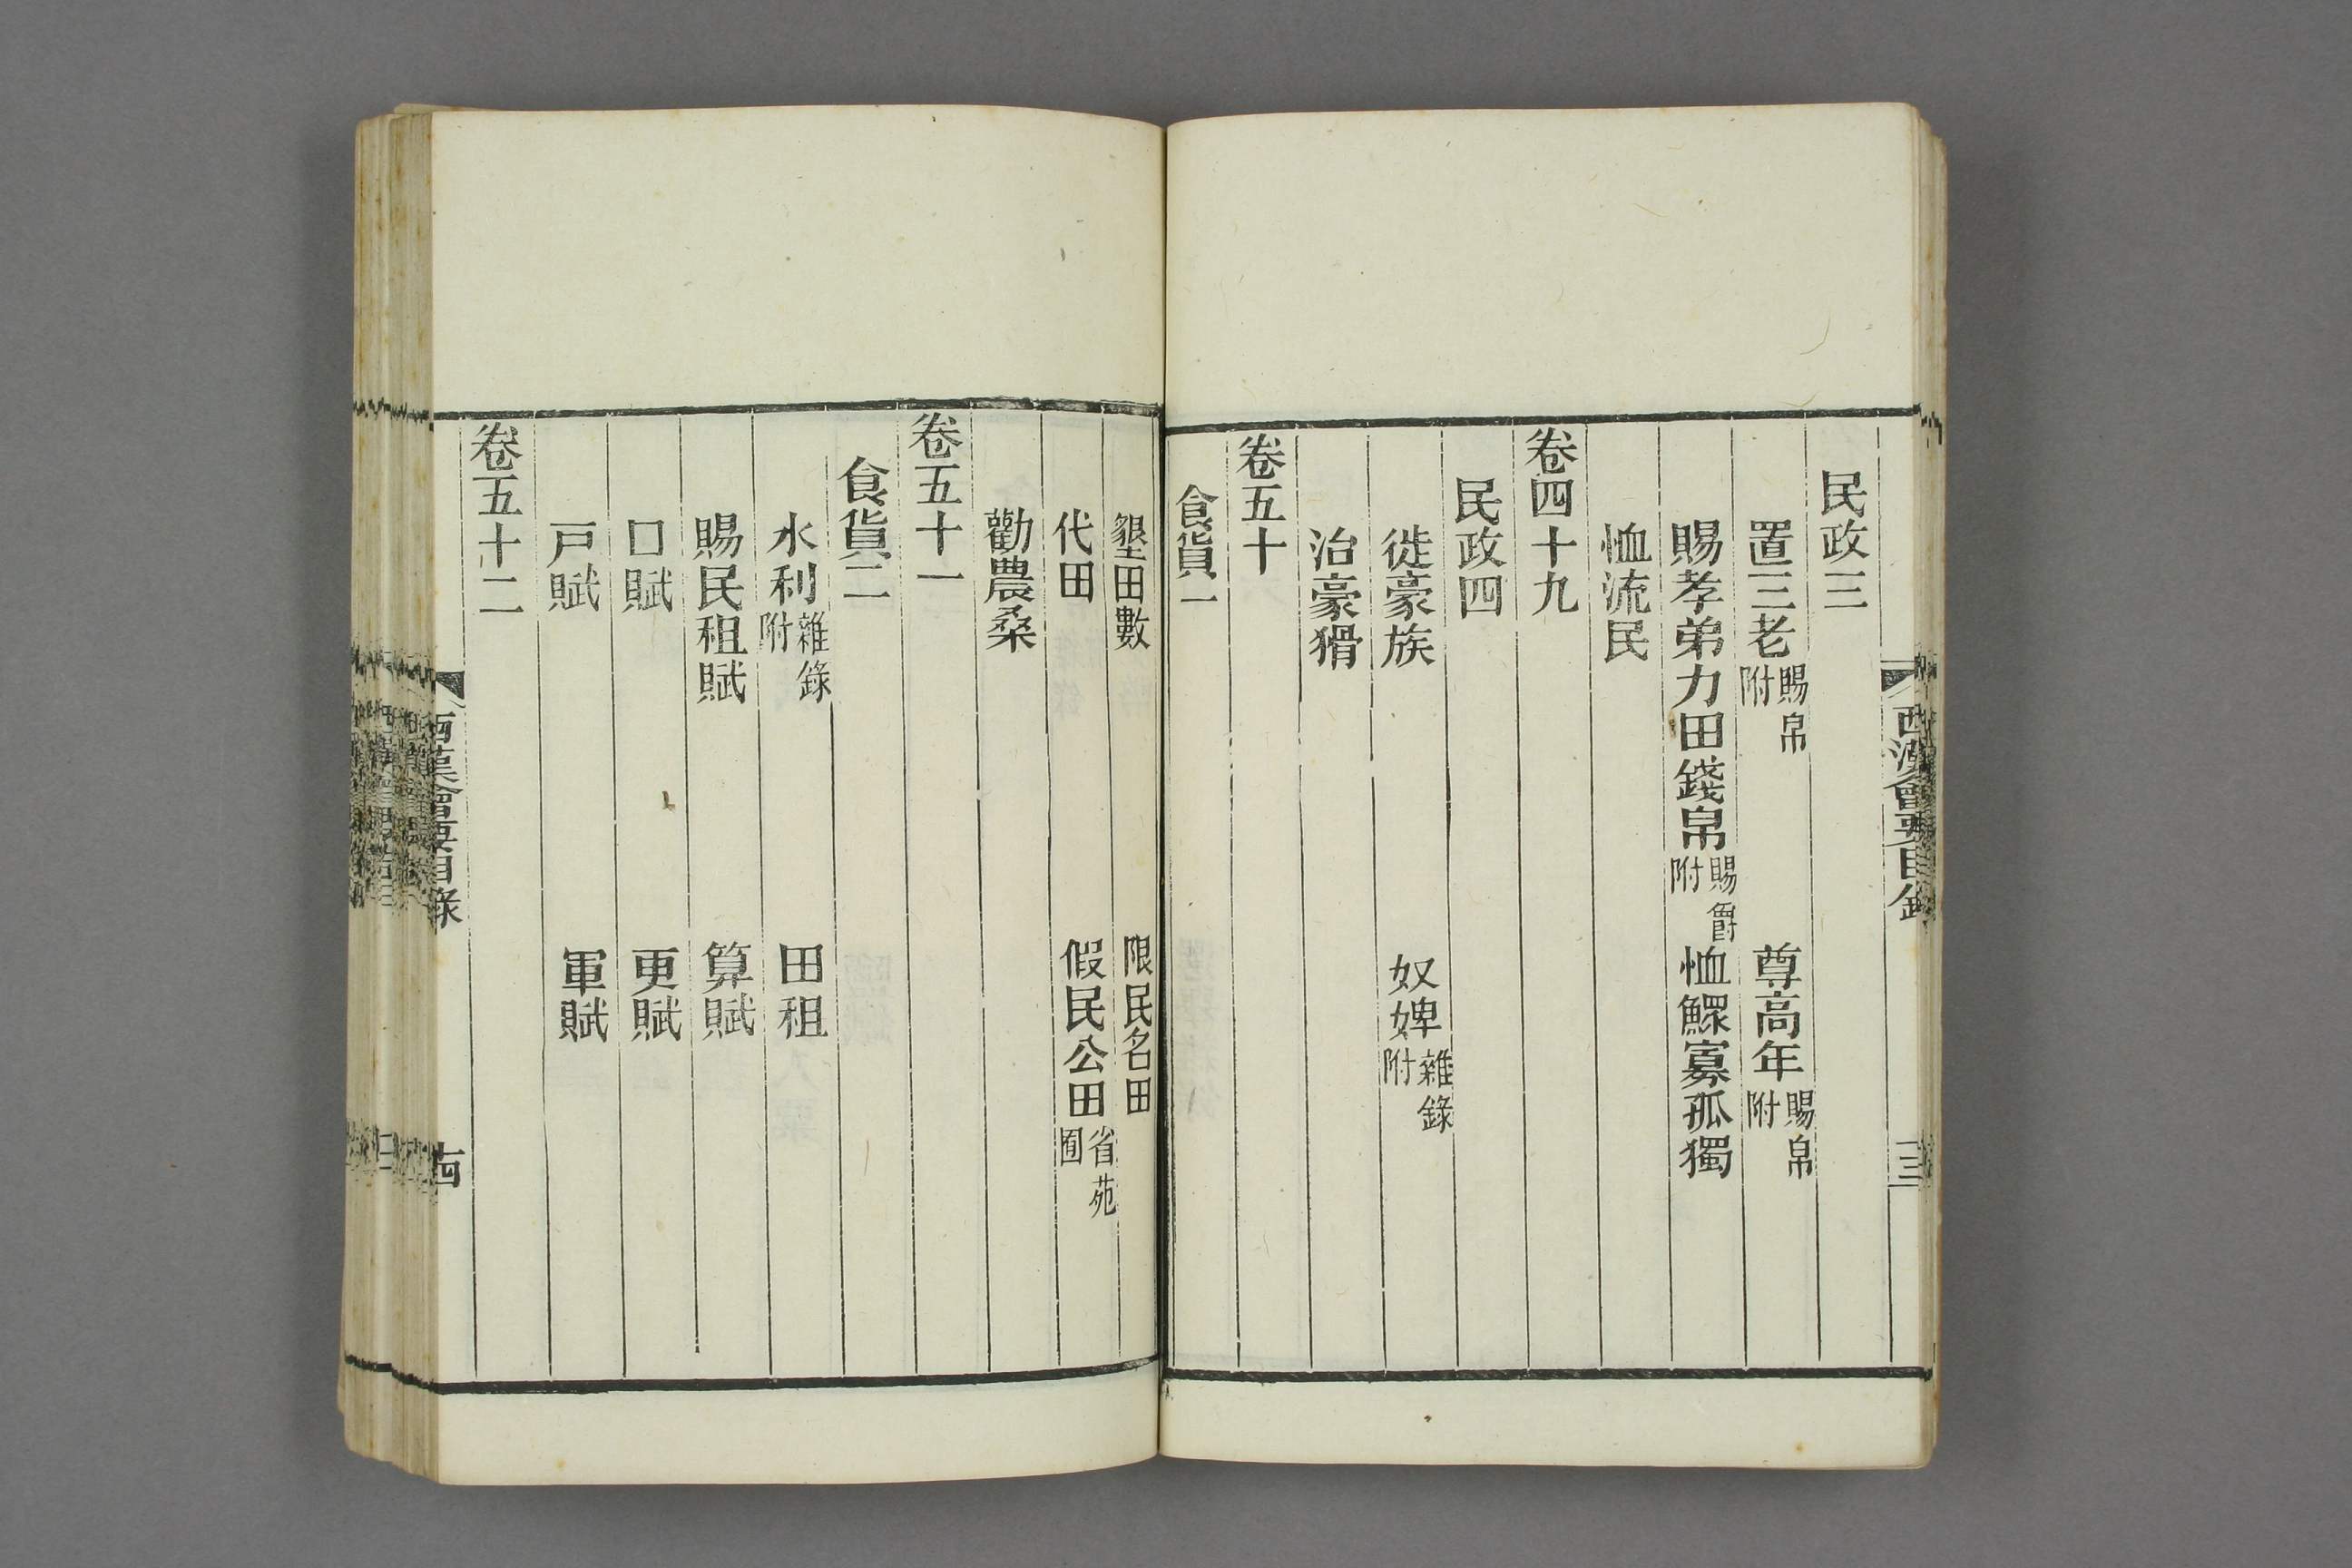 西漢會要目錄
三
民政三
置三老賜帛附 尊高年賜帛附
賜孝弟力田錢帛賜爵附 恤鰥寡孤獨
恤流民
卷四十九
民政四
徙豪族 奴婢雜錄附
治豪猾
卷五十
食貨一
墾田數 限民名田
代田 假民公田省苑囿
勸農桑
卷五十一
食貨二
水利雜錄附 田租
賜民租賦 算賦
口賦 更賦
戸賦 軍賦
卷五十二
西漢會要目錄